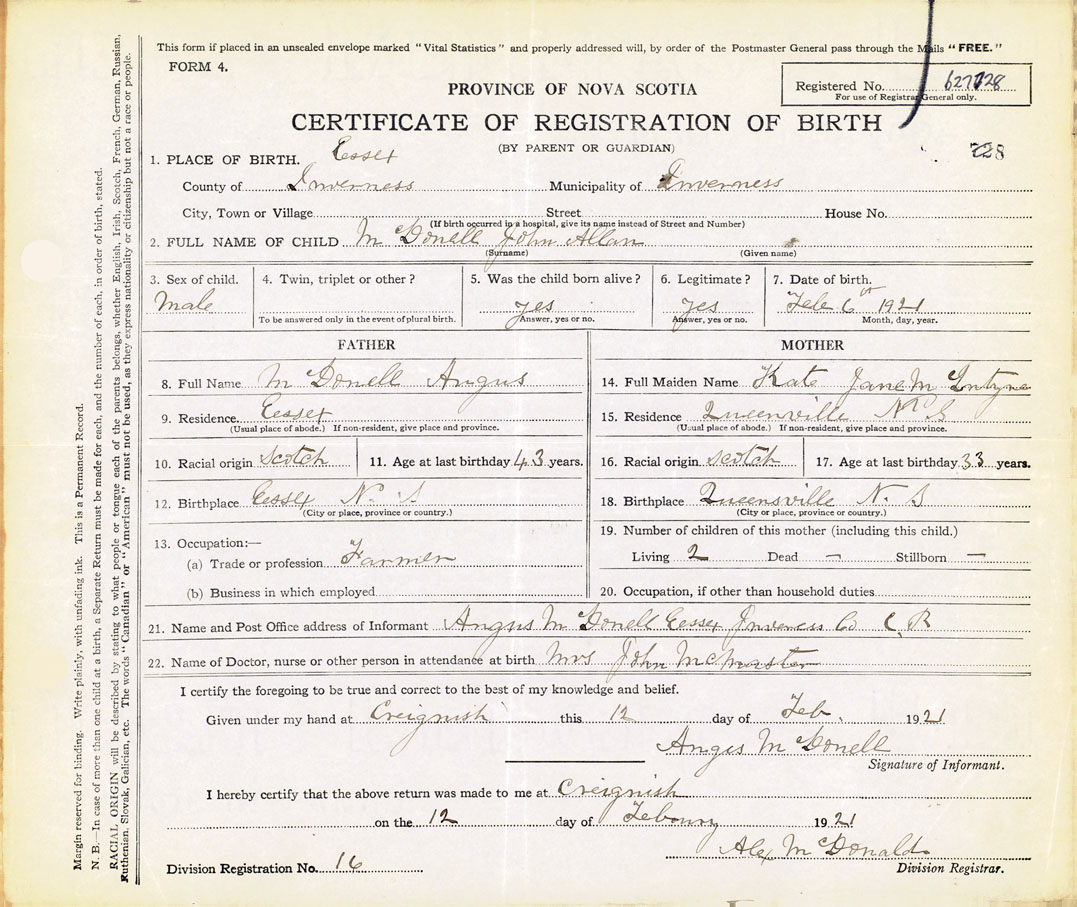 This form if placed in an unsealed envelope marked "Vital Statistics" and properly addressed will, by order of the Postmaster General pass through the Mails "FREE."
FORM 4.
PROVINCE OF NOVA SCOTIA
Registered No.
For use of Registrar General only.
CERTIFICATE OF REGISTRATION OF BIRTH
(BY PARENT OR GUARDIAN)
728
1. PLACE OF BIRTH. Essex
County of Inverness Municipality of Inverness
City, Town or Village Street House No.
(If birth occurred in a hospital, give its name instead of Street and Number)
2. FULL NAME OF CHILD McDonell John Allan
(Surname) (Given name)
3. Sex of child. 4. Twin, triplet or other? 5. Was the child born alive? 6. Legitimate? 7. Date of birth.
Male yes yes Feb 6th 1921
To be answered only in the event of plural birth. Answer, yes or no. Answer, yes or no. Month, day, year.
FATHER
8. Full Name McDonell Angus
9. Residence. Essex
(Usual place of abode.) If non-resident, give place and province.
10. Racial origin Scotch 11. Age at last birthday 43 years.
12. Birthplace Essex N. S
(City or place, province or country.)
13. Occupation:—
(a) Trade or profession Farmer
(b) Business in which employed
MOTHER
14. Full Maiden Name Kate Jane McIntyre
15. Residence Queenville N. S
(Usual place of abode.) If non-resident, give place and province.
16. Racial origin scotch 17. Age at last birthday 33 years.
18. Birthplace Queensville N. S
(City or place, province or country.)
19. Number of children of this mother (including this child.)
Living 2 Dead — Stillborn —
20. Occupation, if other than household duties
21. Name and Post Office address of Informant Angus McDonell Essex Inverness Co C. B
22. Name of Doctor, nurse or other person in attendance at birth Mrs John McMaster
I certify the foregoing to be true and correct to the best of my knowledge and belief.
Given under my hand at Creignish this 12 day of Feb. 1921
Angus McDonell
Signature of Informant.
I hereby certify that the above return was made to me at Creignish
on the 12 day of 1921
Alex McDonald
Division Registration No. 16 Division Registrar.
Margin reserved for binding. Write plainly, with unfading ink. This is a Permanent Record.
N. B.—In case of more than one child at a birth, a Separate Return must be made for each, and the number of each, in order of birth, stated.
RACIAL ORIGIN will be described by stating to what people or tongue each of the parents belongs, whether English, Irish, Scotch, French, German, Russian,
Ruthenian, Slovak, Galician, etc. The words "Canadian" or "American" must not be used, as they express nationality or citizenship but not a race or people.